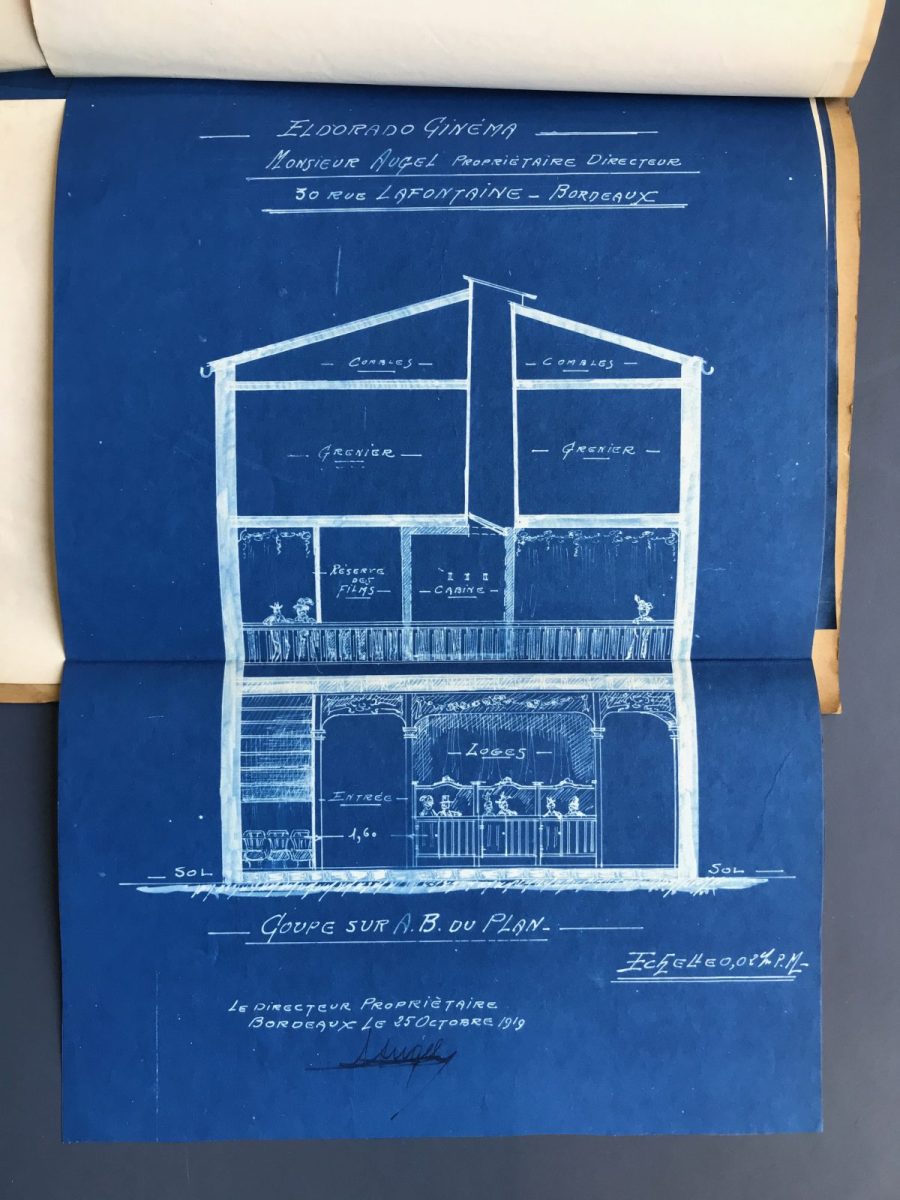 ELDORADO CINÉMA
MONSIEUR AUGEL PROPRIÉTAIRE DIRECTEUR
30 RUE LAFONTAINE - BORDEAUX
COMBLES
COMBLES
GRENIER
GRENIER
RÉSERVE
DES
FILMS
CABINE
LOGES
ENTRÉE
1,60
SOL
SOL
COUPE SUR A.B. DU PLAN
ECHELLE 0,02 % P.M
LE DIRECTEUR PROPRIÉTAIRE
BORDEAUX LE 25 OCTOBRE 1919
Augel